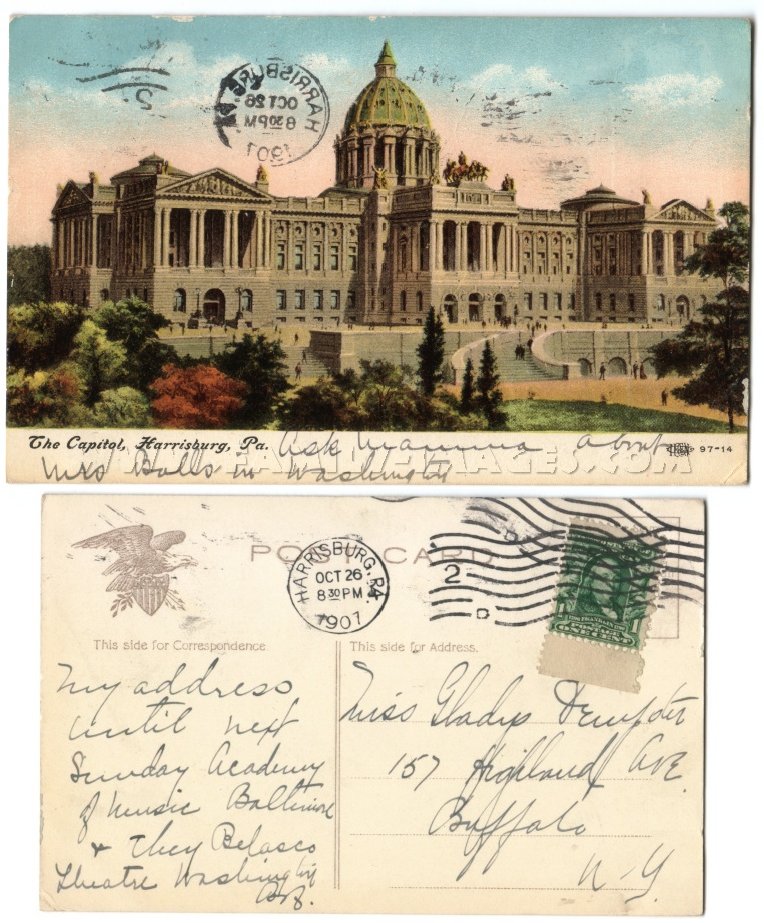 HARRISBURG, PA.
OCT 26
8 30 PM
1907
2
The Capitol, Harrisburg, Pa. Ask Mamma about
97-14
Mrs Balls in Washington
POST CARD
HARRISBURG, PA.
OCT 26
8 30 PM
1907
2
D
D
POSTAGE
ONE CENT
1
This side for Correspondence.
This side for Address.
My address
until next
Sunday Academy
of Music Baltimore
& they Belasco
Theatre Washington
Miss Gladys Dempster
157 Highland Ave.
Buffalo
N-Y.